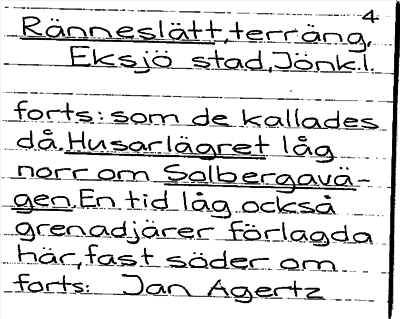 4
Ränneslätt, terräng,
Eksjö stad, Jönk.l.
forts: som de kallades
då. Husarlägret låg
norr om Solbergavä-
gen. En tid låg också
grenadjärer förlagda
här, fast söder om
forts: Jan Agertz